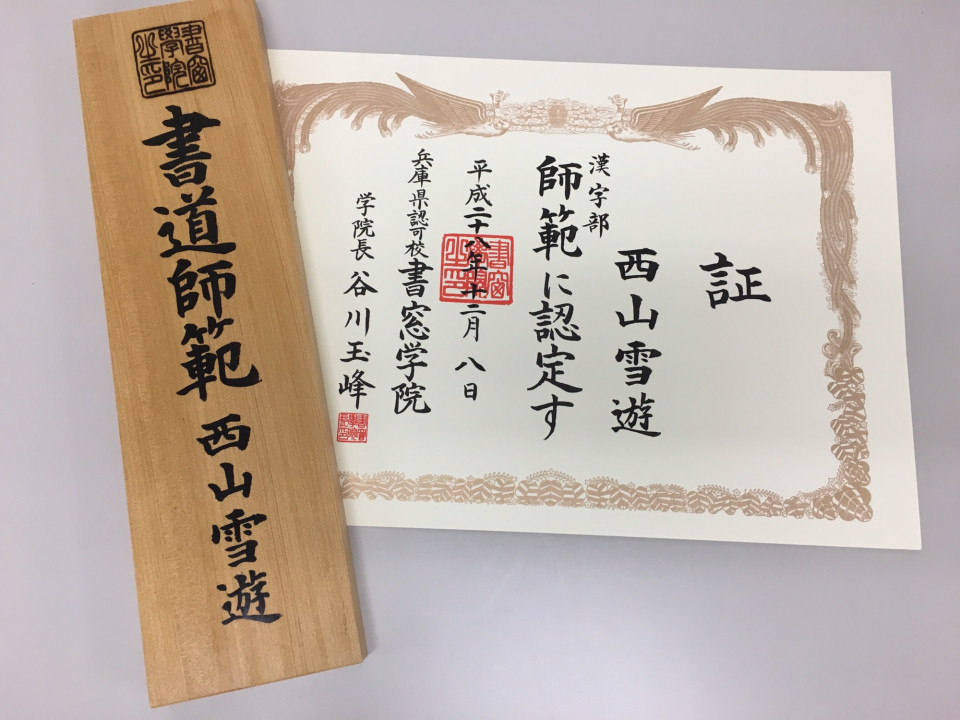 証
西山雪遊
漢字部
師範に認定す
平成二十八年十二月八日
書窗學院之印
兵庫県認可校 書窓学院
学院長 谷川玉峰
書窗
學院
之印
書道師範 西山雪遊